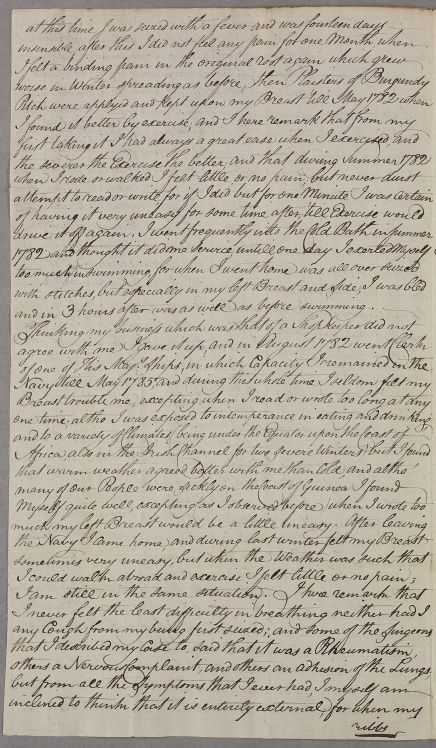 at this time I was seized with a fever and was fourteen days
insensible, after this I did not feel any pain for one Month, when
I felt a binding pain in the original root again which grew
worse in Winter spreading as before, then Plaisters of Burgundy
Pitch were applyed and kept upon my Breast till May 1782 when
I found it better by exercise, and I here remark that from my
first taking it I had always a great ease when I exercised, and
the severer the Exercise the better, and that during Summer 1782
when I rode or walked I felt little or no pain, but never durst
attempt to read or write for if I did but for one Minute I was certain
of having it very uneasy for some time after, till Exercise would
drive it off again. I went frequently into the Cold Bath in summer
1782 and thought it did me service untill one day I exerted Myself
too much in Swimming, for when I went home I was all over seized
with stitches, but especially in my left Breast and side, I was bled
and in 3 hours after was as well as before swimming.
Thinking my business which was that of a Shopkeeper did not
agree with me I gave it up, and in August 1782 went Clerk
of one of His Maj's Ships, in which Capacity I remained in the
Navy till May 1785 and during this whole time I seldom felt my
Breast trouble me, excepting when I read or wrote too long at any
one time, altho I was exposed to intemperance in eating and drinking
and to a variety of Climates, being under the Equator upon the Coast of
Africa, also in the Irish Channel for two severe Winters but I found
that warm weather agreed better with me than Cold, and altho'
many of our People were sickly on the Coast of Guinea I found
Myself quite well, excepting as I observed before, when I wrote too
much my left Breast would be a little uneasy. After leaving
the Navy I came home, and during last winter felt my Breast
sometimes very uneasy, but when the Weather was such that
I could walk abroad and exercise I felt little or no pain,
I am still in the same situation. I here remark that
I never felt the least difficulty in breathing neither had I
any Cough from my being first seized, and some of the Surgeons
that I described my Case to said that it was a Rheumatism,
others a Nervous Complaint, and others an adhesion of the Lungs,
but from all the Symptoms that I ever had I myself am
inclined to think that it is entirely external, for when my
ribbs